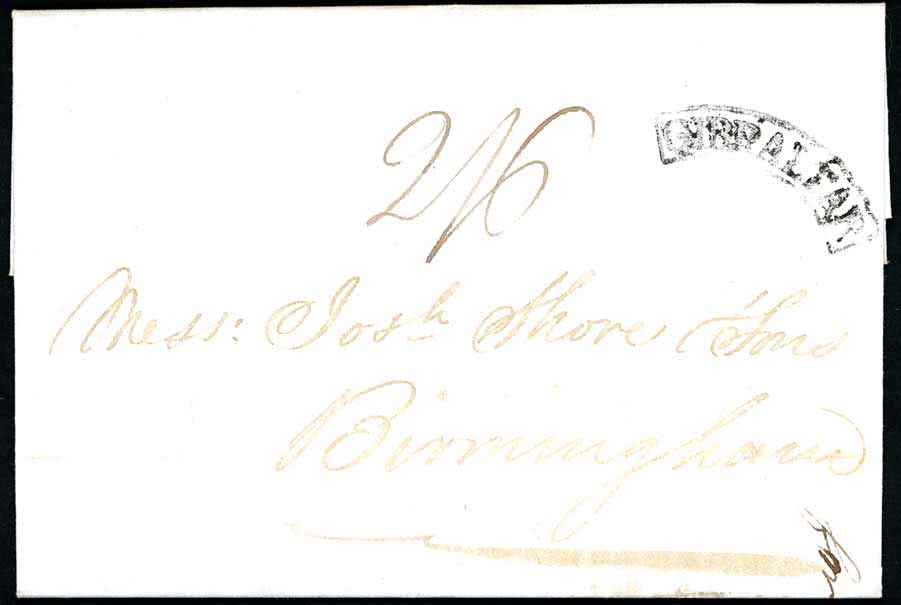 GIBRALTAR
2/6
Mess: Josh Shore Sons
Birmingham